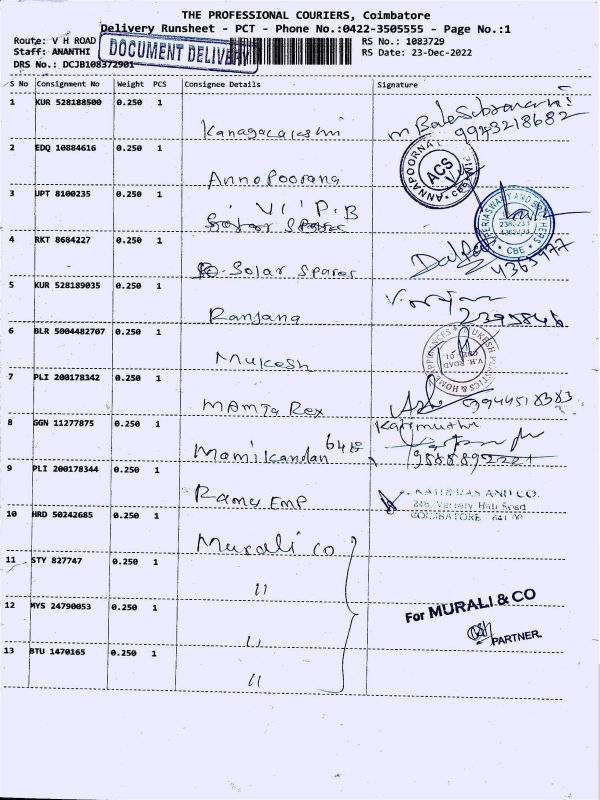 THE PROFESSIONAL COURIERS, Coimbatore
Delivery Runsheet - PCT - Phone No.:0422-3505555 - Page No.:1
Route: V H ROAD
RS No.: 1083729
Staff: ANANTHI
RS Date: 23-Dec-2022
DRS No.: DCJB108372901
DOCUMENT DELIVERY
S No Consignment No Weight PCS Consignee Details Signature
1 KUR 528188500 0.250 1
Kanagalakshmi
M Balasubramani
9943218682
2 EDQ 10884616 0.250 1
Annapoorana
ANNAPOORNA
ACS
CBE
3 JPT 8100235 0.250 1
V I P.B
Solar Spares
CBE
4 RKT 8684227 0.250 1
Solar Spares
4363977
5 KUR 528189035 0.250 1
Ranjana
2395846
6 BLR 5004482707 0.250 1
Mukesh
MUKESH PLASTICS & HOME APPLIANCES
V.H. ROAD
7 PLI 200178342 0.250 1
Mamta Rex
9944518383
8 GGN 11277875 0.250 1
Manikandan
Karimuthu
9 PLI 200178344 0.250 1
Ramu Emp
AND CO.
248, Variety Hall Road
COIMBATORE
10 HRD 50242685 0.250 1
Murali co
11 STY 827747 0.250 1
"
12 MYS 24790053 0.250 1
"
For MURALI & CO
PARTNER.
13 BTU 1470165 0.250 1
"